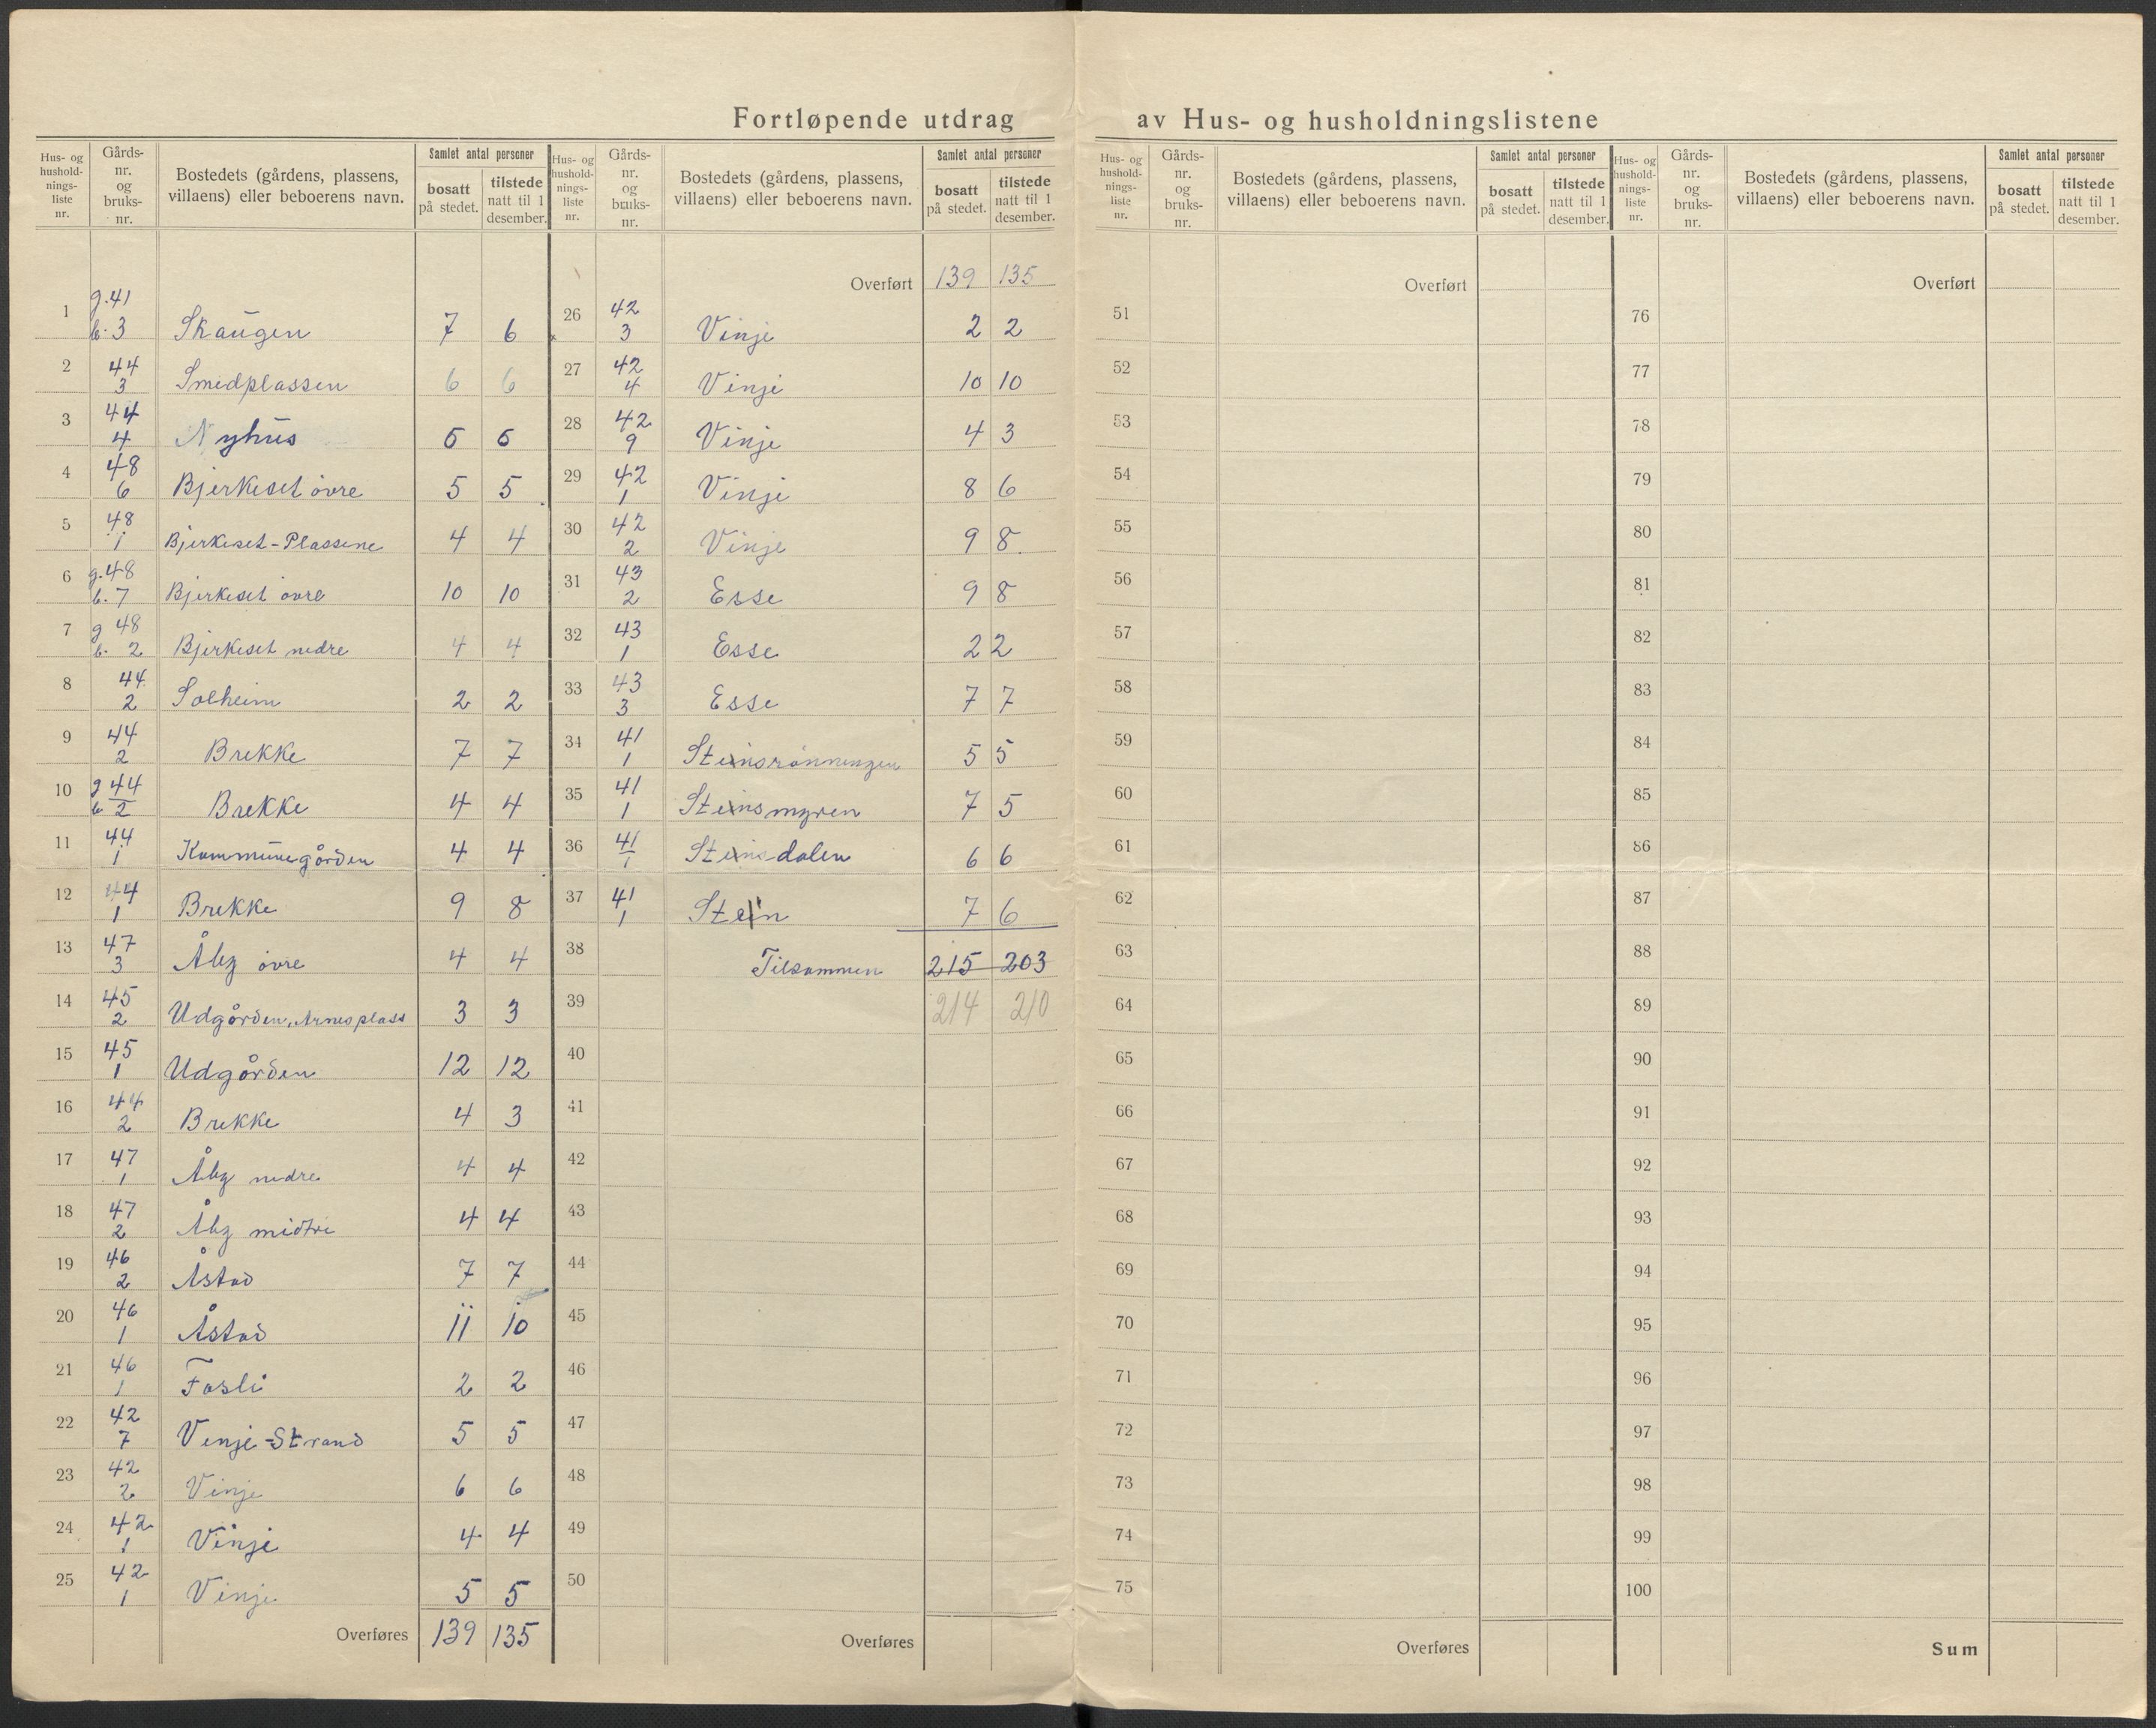 Fortløpende utdrag av Hus- og husholdningslistene
Hus- og husholdnings-liste nr. | Gårds-nr. og bruks-nr. | Bostedets (gårdens, plassens, villaens) eller beboerens navn. | Samlet antal personer | bosatt på stedet. | tilstede natt til 1 desember.
1 | g. 41 b. 3 | Skaugen | 7 | 6
2 | 44 3 | Smedplassen | 6 | 6
3 | 44 4 | Nyhus | 6 | 6
4 | 48 6 | Bjerkeset övre | 5 | 5
5 | 48 1 | Bjerkeset-Plassene | 4 | 4
6 | g. 48 b. 7 | Bjerkeset övre | 10 | 10
7 | g 48 b. 2 | Bjerkeset nedre | 4 | 4
8 | 44 2 | Solheim | 2 | 2
9 | 44 2 | Brekke | 7 | 7
10 | g 44 b 2 | Brekke | 4 | 4
11 | 44 1 | Kommunegården | 4 | 4
12 | 44 1 | Brekke | 9 | 8
13 | 47 3 | Åby övre | 4 | 4
14 | 45 2 | Udgården, Arnesplass | 3 | 3
15 | 45 1 | Udgården | 12 | 12
16 | 44 2 | Brekke | 4 | 3
17 | 47 1 | Åby nedre | 4 | 4
18 | 47 2 | Åby midtre | 4 | 4
19 | 46 2 | Åstad | 7 | 7
20 | 46 1 | Åstad | 11 | 10
21 | 46 1 | Fosli | 2 | 2
22 | 42 7 | Venje-Strand | 5 | 5
23 | 42 2 | Vinje | 6 | 6
24 | 42 1 | Vinje | 4 | 4
25 | 42 1 | Vinje | 5 | 5
Overføres | 139 | 135
Hus- og husholdnings-liste nr. | Gårds-nr. og bruks-nr. | Bostedets (gårdens, plassens, villaens) eller beboerens navn. | Samlet antal personer | bosatt på stedet. | tilstede natt til 1 desember.
Overført | 139 | 135
26 | 42 3 | Vinje | 2 | 2
27 | 42 4 | Vinje | 10 | 10
28 | 42 9 | Vinje | 4 | 3
29 | 42 1 | Vinje | 8 | 6
30 | 42 2 | Vinje | 9 | 8
31 | 43 2 | Esse | 9 | 8
32 | 43 1 | Esse | 2 | 2
33 | 43 3 | Esse | 7 | 7
34 | 41 1 | Steinsrönningen | 5 | 5
35 | 41 1 | Steinsmyren | 7 | 5
36 | 41 1 | Steinsdalen | 6 | 6
37 | 41 1 | Stein | 7 | 6
38 | Tilsammen | 215 | 203
39 | 214 | 210
40
41
42
43
44
45
46
47
48
49
50
Overføres
Hus- og husholdnings-liste nr. | Gårds-nr. og bruks-nr. | Bostedets (gårdens, plassens, villaens) eller beboerens navn. | Samlet antal personer | bosatt på stedet. | tilstede natt til 1 desember.
Overført
51
52
53
54
55
56
57
58
59
60
61
62
63
64
65
66
67
68
69
70
71
72
73
74
75
Overføres
Hus- og husholdnings-liste nr. | Gårds-nr. og bruks-nr. | Bostedets (gårdens, plassens, villaens) eller beboerens navn. | Samlet antal personer | bosatt på stedet. | tilstede natt til 1 desember.
Overført
76
77
78
79
80
81
82
83
84
85
86
87
88
89
90
91
92
93
94
95
96
97
98
99
100
Sum